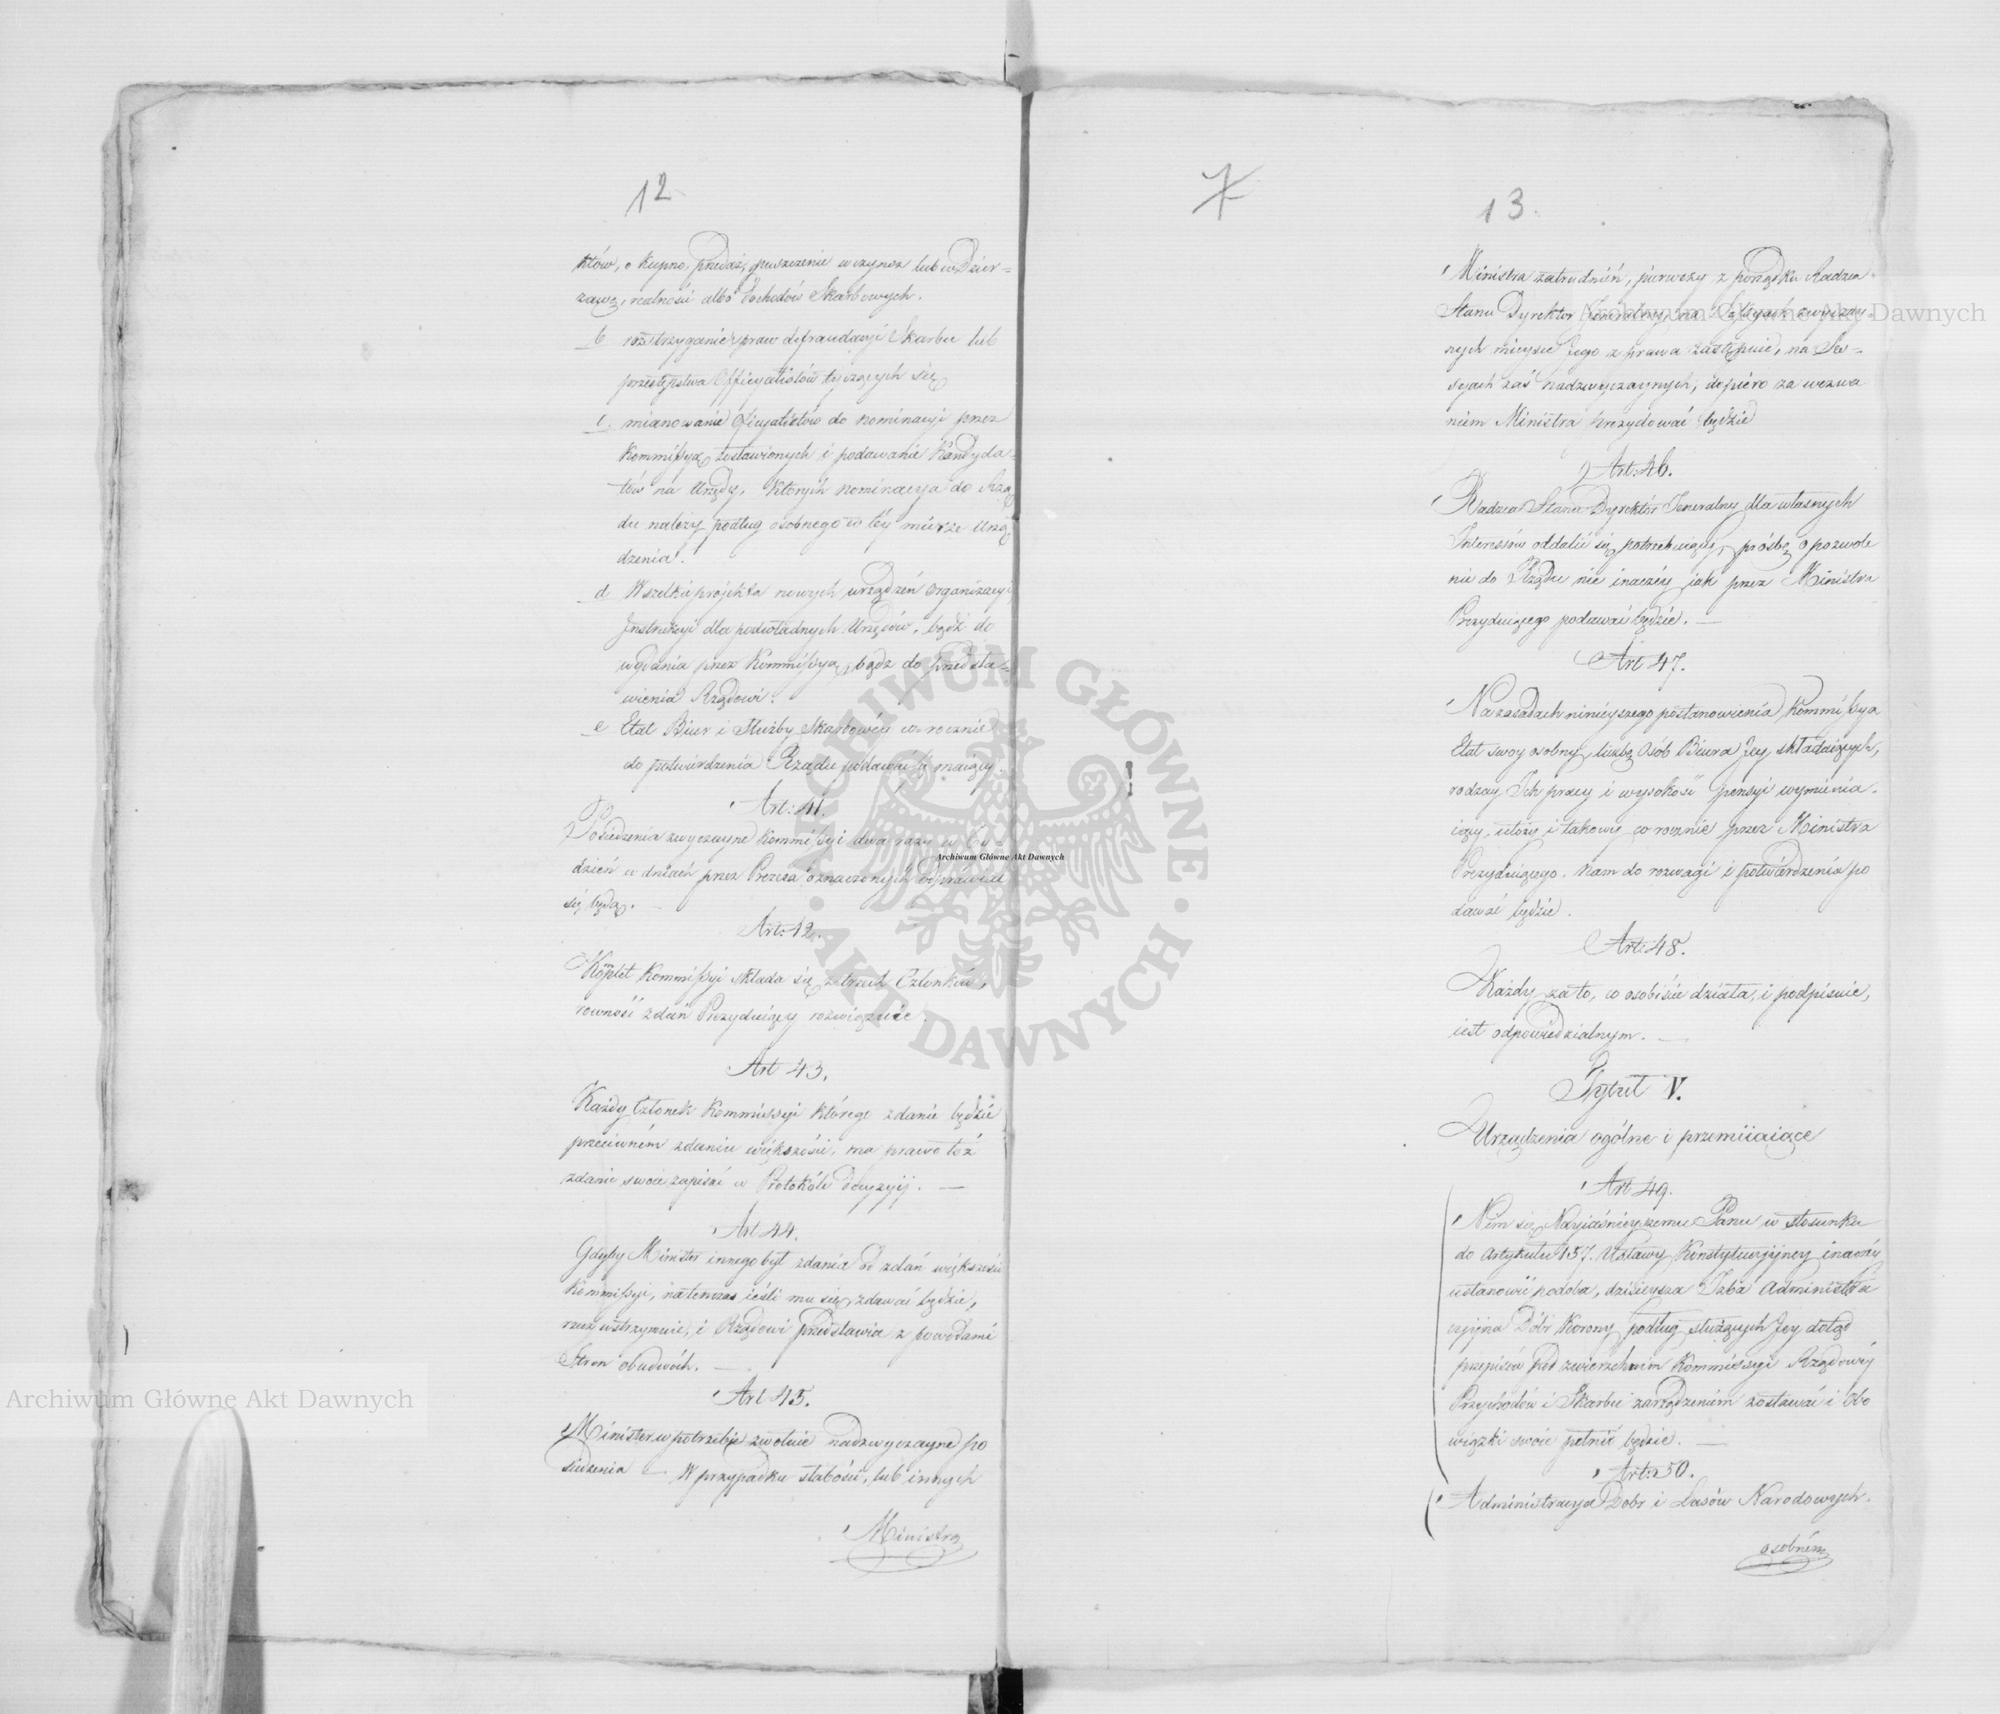 12
któw, o kupno, przedaż, puszczenie w czynsz lub w Dzier=
zawę, realności albo Dochodów Skarbowych.
b rozstrzyganie spraw defraudacyi Skarbu lub
przestępstwa Officyalistów tyczących się
c. mianowanie Oficyalistów do nominacyi przez
Kommissyą zostawionych i podawanie Kandyda=
tów na Urzędy, których nominacya do Rzą
du należy podług osobnego w téy mierze Urzą
dzenia.
d Wszelkie projekta nowych urządzeń organizacyi,
Instrukcyi dla podwładnych Urzędów, bądź do
wydania przez Kommissyą, bądz do przedsta=
wienia Rządowi.
e Etat Biur i Służby Skarbowéy co rocznie
do potwierdzenia Rządu podawać się maiący.
Art: 41.
Posiedzenia zwyczayne Kommissyi dwa razy w Ty=
dzień w dniach przez Prezesa oznaczonych odprawiać
się będą.
Art: 42.
Komplet Kommissyi składa się z trzech Członków,
rowność zdań Prezyduiący rozwięzuie.
Art 43.
Każdy Członek Kommissyi którego zdanie będzie
przeciwném zdaniu większości, ma prawo też
zdanie swoie zapisać w Protokóle Decyzyij.
Art 44.
Gdyby Minister innego był zdania od zdań większości
Kommissyi, natenczas ieśli mu się zdawać będzie,
rzecz wstrzymuie, i Rządowi przedstawia z powodami
Stron obudwóch.
Art 45.
Minister w potrzebie zwołuie nadzwyczayne po
siedzenia – W przypadku słabości, lub innych
Ministra
13.
Ministra zatrudnień, pierwszy z porządku Radzca
Stanu Dyrektor Jeneralny na Sessyach zwyczay=
nych mieysce Jego z prawa zastępuie, na Ses=
syach zaś nadzwyczaynych, dopiéro za wezwa
niem Ministra prezydować będzie
Art: 46.
Radzca Stanu Dyrektór Jeneralny dla własnych
Interessów oddalić się potrzebuiący, prośbę o pozwole
nie do Rządu nie inaczéy jak przez Ministra
Prezyduiącego podawać będzie.
Art 47.
Na zasadach ninieyszego postanowienia Kommissya
Etat swoy osobny, liczbę osób Biura Jey składaiących,
rodzay Ich pracy i wysokość pensyi wymienia=
iący, ułoży i takowy co rocznie przez Ministra
Prezyduiącego. Nam do rozwagi i potwierdzenia po
dawać będzie.
Art: 48.
Każdy za to, co osobiście działa, i podpisuie,
iest odpowiedzialnym.
Tytuł V.
Urządzenia ogólne i przemiiaiące
Art 49.
Nim się Nayjaśnieyszemu Panu w stosunku
do Artykułu 157. Ustawy Konstytucyjney inaczéy
ustanowić podoba, dzisieysza Izba Administra
cyjna Dóbr Korony podług służących Jey dotąd
przepisów pod zwierzchnim Kommissyi Rządowéy
Przychodów i Skarbu zarządzeniem zostawać i obo
wiązki swoie pełnić będzie.
Art: 50.
Administracya Dobr i Lasów Narodowych.
osobném
Archiwum Główne Akt Dawnych
Archiwum Główne Akt Dawnych
Archiwum Główne Akt Dawnych
ARCHIWUM GŁÓWNE · AKT DAWNYCH ·